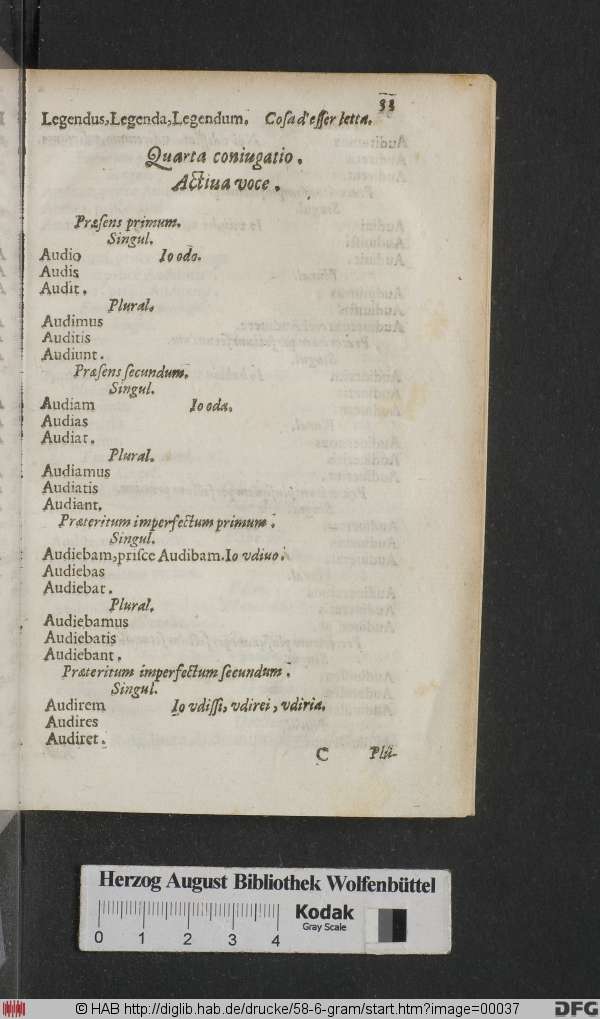 33
Legendus, Legenda, Legendum. Cosa d'esser letta.
Quarta coniugatio.
Actiua voce.
Præsens primum.
Singul.
Audio Io odo.
Audis
Audit.
Plural.
Audimus
Auditis
Audiunt.
Præsens secundum.
Singul.
Audiam Io oda.
Audias
Audiat.
Plural.
Audiamus
Audiatis
Audiant.
Præteritum imperfectum primum.
Singul.
Audiebam, prisce Audibam. Io vdiuo.
Audiebas
Audiebat.
Plural.
Audiebamus
Audiebatis
Audiebant.
Præteritum imperfectum secundum.
Singul.
Audirem Io vdissi, vdirei, vdiria.
Audires
Audiret.
C Plu-
Herzog August Bibliothek Wolfenbüttel
Kodak
Gray Scale
0 1 2 3 4
© HAB http://diglib.hab.de/drucke/58-6-gram/start.htm?image=00037
DFG